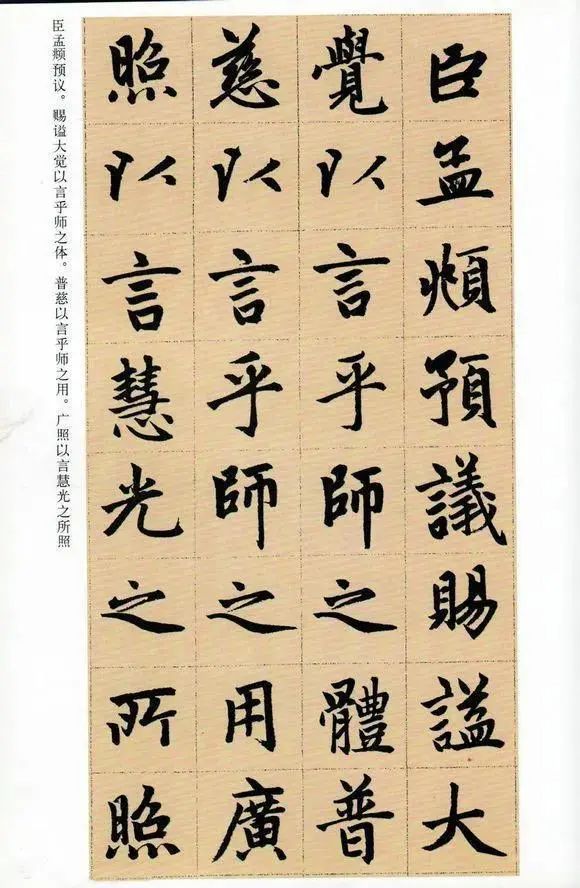 臣孟頫预议。赐谥大觉以言乎师之体。普慈以言乎师之用。广照以言慧光之所照
臣孟頫預議賜謚大
覺以言乎師之體普
慈以言乎師之用廣
照以言慧光之所照